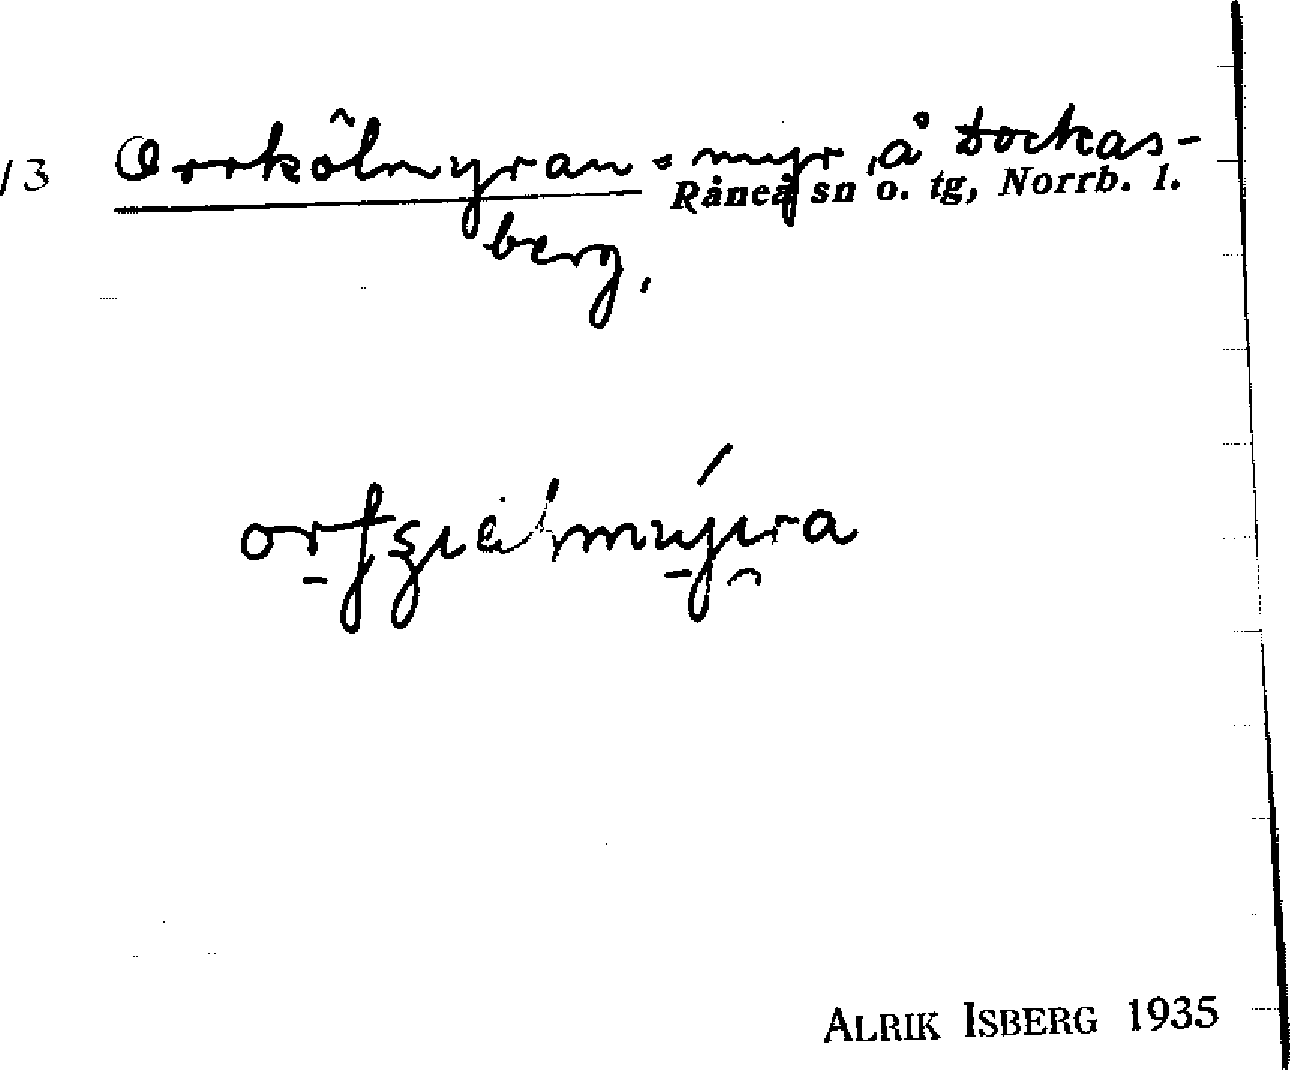 13 Orrkölmyran = myr å Dockas-
Råneå sn o. tg, Norrb. l.
berg.
ALRIK ISBERG 1935